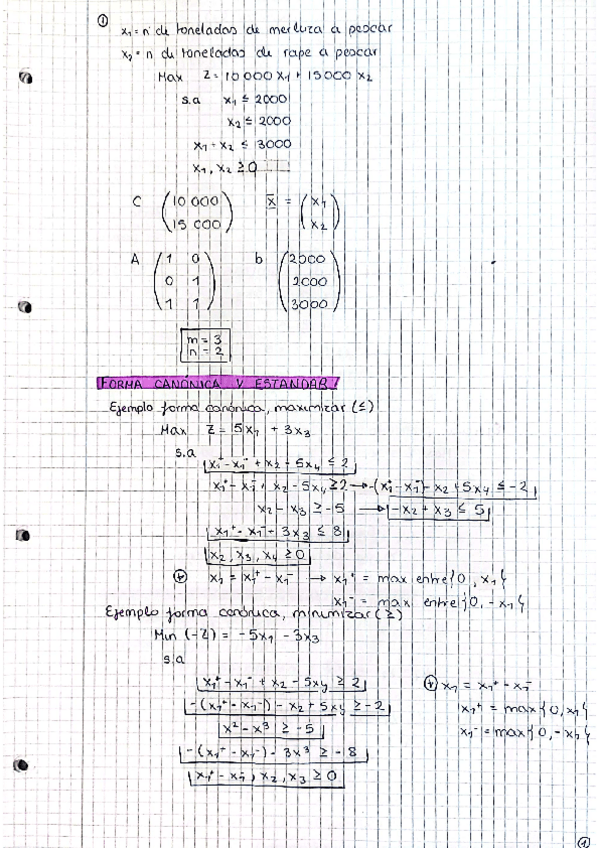 ①
x₁ = nº de toneladas de merluza a pescar
x₂ = n de toneladas de rape a pescar
Max Z = 10 000 x₁ + 15000 x₂
s.a x₁ ≤ 2000
x₂ ≤ 2000
x₁ + x₂ ≤ 3000
x₁, x₂ ≥ 0
C (10 000 15 000) x̄ = (x₁ x₂)
A (1 0 0 1 1 1) b (2000 2000 3000)
m = 3
n = 2
FORMA CANÓNICA Y ESTANDAR
Ejemplo forma canónica, maximizar (≤)
Max Z = 5x₁ + 3x₃
s.a
x₁⁺ - x₁⁻ + x₂ - 5x₄ ≤ 2
x₁⁺ - x₁⁻ + x₂ - 5x₄ ≥ 2 → -(x₁⁺ - x₁⁻) - x₂ + 5x₄ ≤ -2
x₂ - x₃ ≥ -5 → -x₂ + x₃ ≤ 5
x₁⁺ - x₁⁻ - 3x₃ ≤ 8
x₂, x₃, x₄ ≥ 0
x₁ = x₁⁺ - x₁⁻ → x₁⁺ = max entre {0, x₁}
x₁⁻ = max entre {0, -x₁}
Ejemplo forma canónica, minimizar (≥)
Min (-Z) = -5x₁ - 3x₃
s.a
x₁⁺ - x₁⁻ + x₂ - 5x₄ ≥ 2
-(x₁⁺ - x₁⁻) - x₂ + 5x₄ ≥ -2
x² - x³ ≥ -5
-(x₁⁺ - x₁⁻) - 3x³ ≥ -8
x₁⁺ - x₁⁻, x₂, x₃ ≥ 0
x₁ = x₁⁺ - x₁⁻
x₁⁺ = max{0, x₁}
x₁⁻ = max{0, -x₁}
①